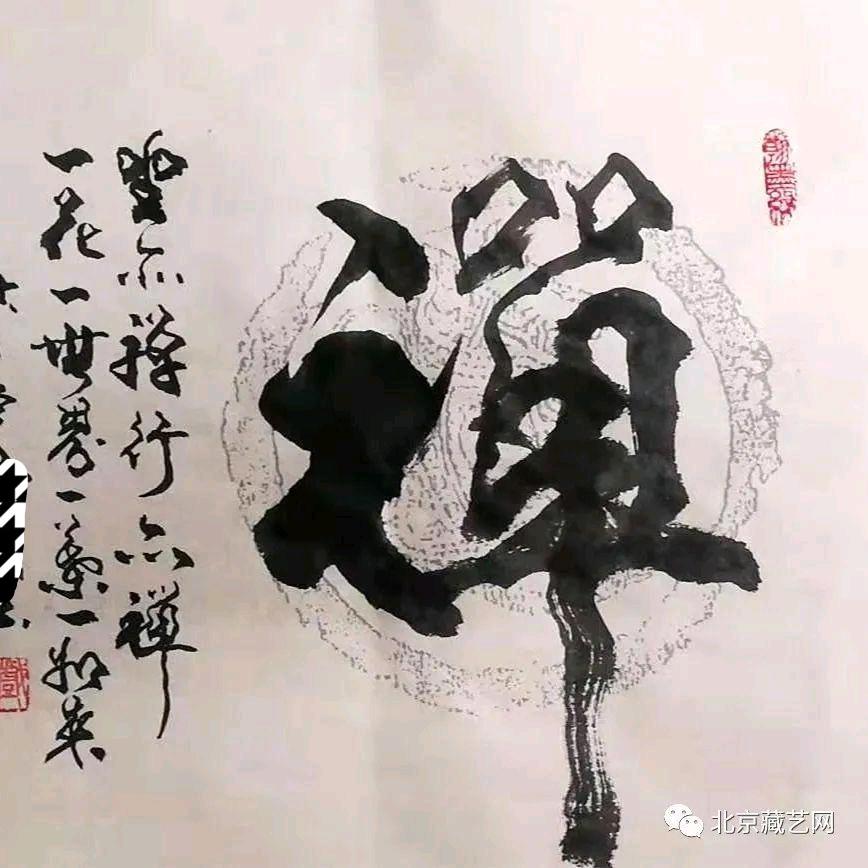 禪
坐亦禪行亦禪
一花一世界一葉一如来
北京藏艺网